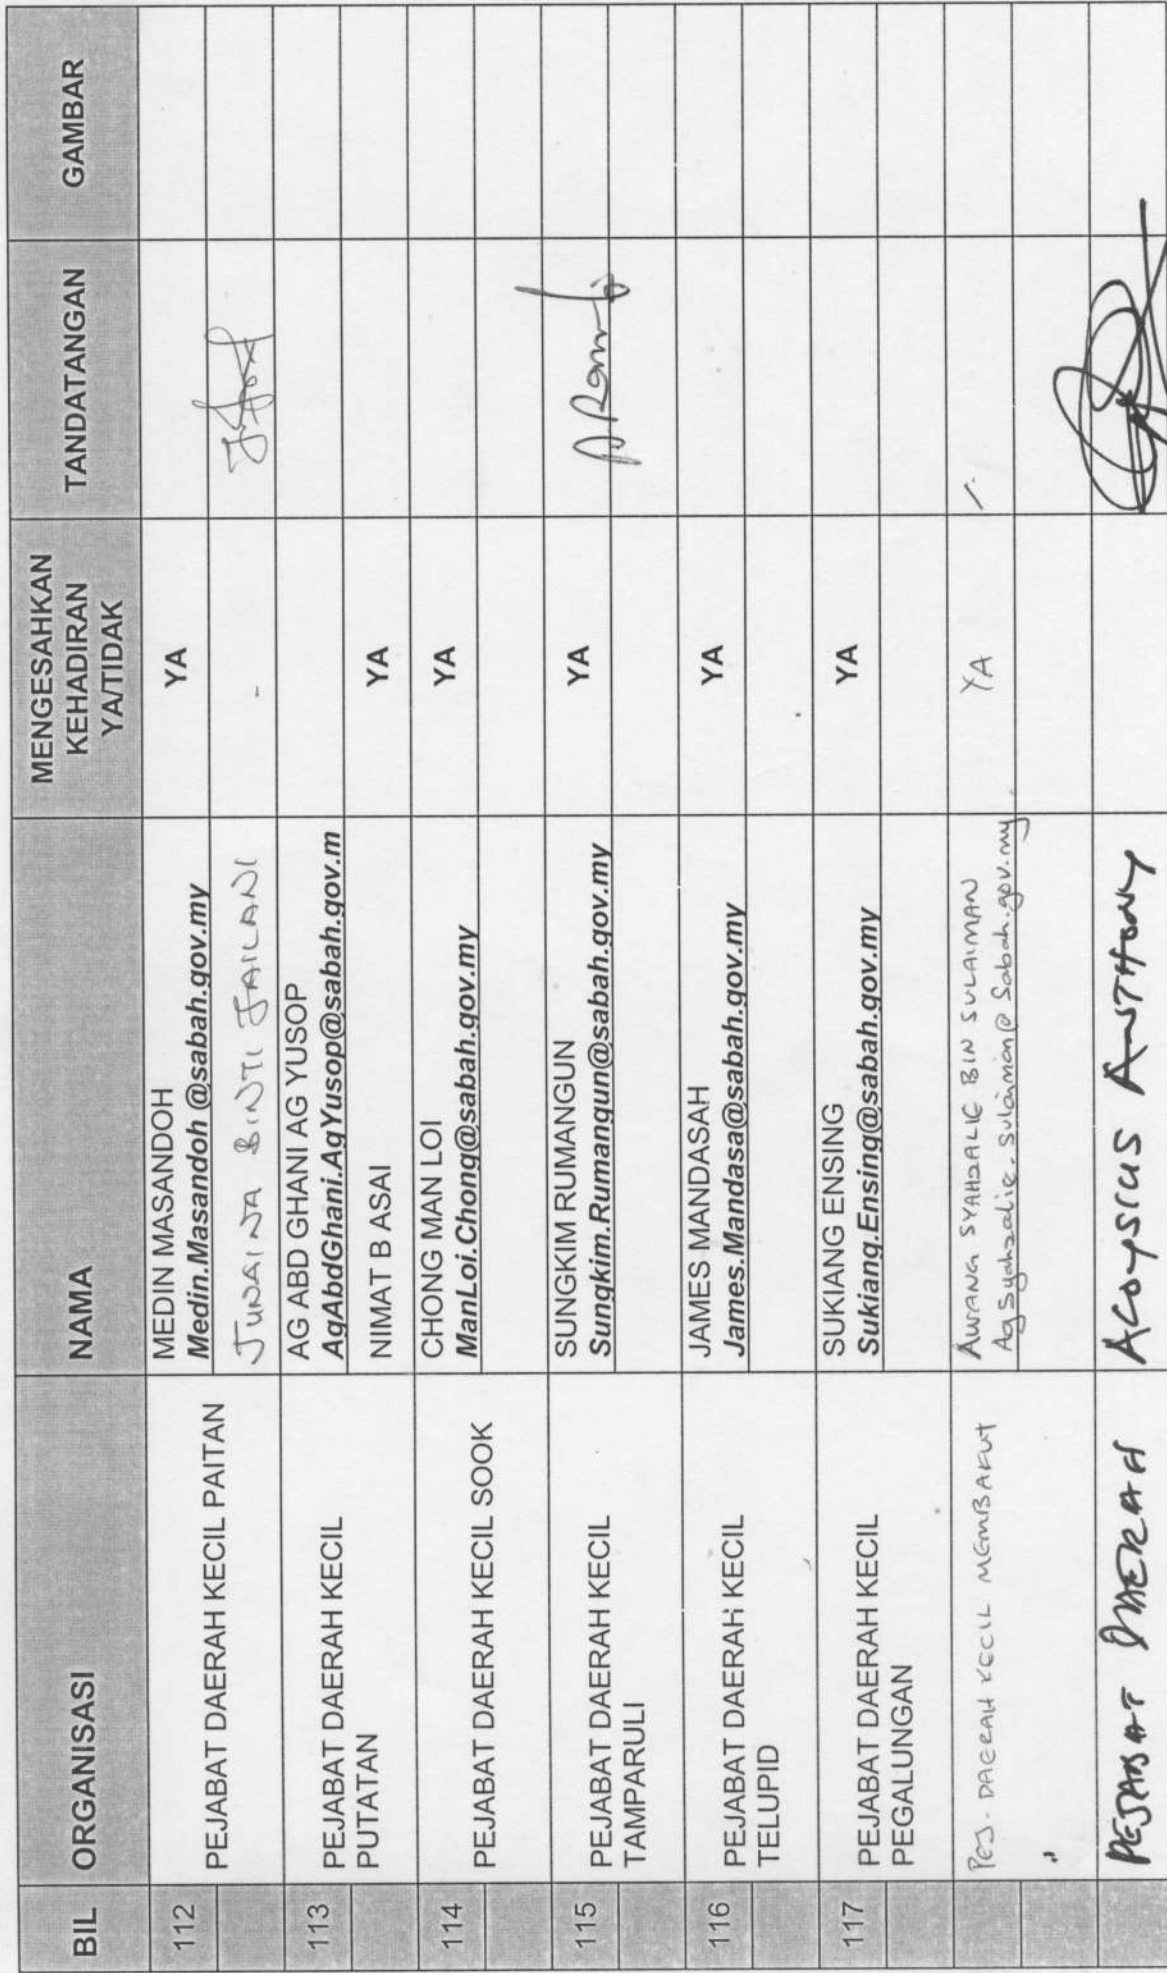 BIL ORGANISASI NAMA MENGESAHKAN KEHADIRAN YA/TIDAK TANDATANGAN GAMBAR
112 PEJABAT DAERAH KECIL PAITAN MEDIN MASANDOH YA
Medin.Masandoh @sabah.gov.my
JUNAINA BINTI JAILANI -
113 PEJABAT DAERAH KECIL AG ABD GHANI AG YUSOP
PUTATAN AgAbdGhani.AgYusop@sabah.gov.m
NIMAT B ASAI YA
114 PEJABAT DAERAH KECIL SOOK CHONG MAN LOI YA
ManLoi.Chong@sabah.gov.my
115 PEJABAT DAERAH KECIL SUNGKIM RUMANGUN YA
TAMPARULI Sungkim.Rumangun@sabah.gov.my
116 PEJABAT DAERAH KECIL JAMES MANDASAH YA
TELUPID James.Mandasa@sabah.gov.my
117 PEJABAT DAERAH KECIL SUKIANG ENSING YA
PEGALUNGAN Sukiang.Ensing@sabah.gov.my
PEJ. DAERAH KECIL MEMBAKUT AWANG SYAHZALIE BIN SULAIMAN YA /.
" AgSyahzalie.Sulaiman@Sabah.gov.my
PEJABAT DAERAH ALOYSIUS ANTHONY